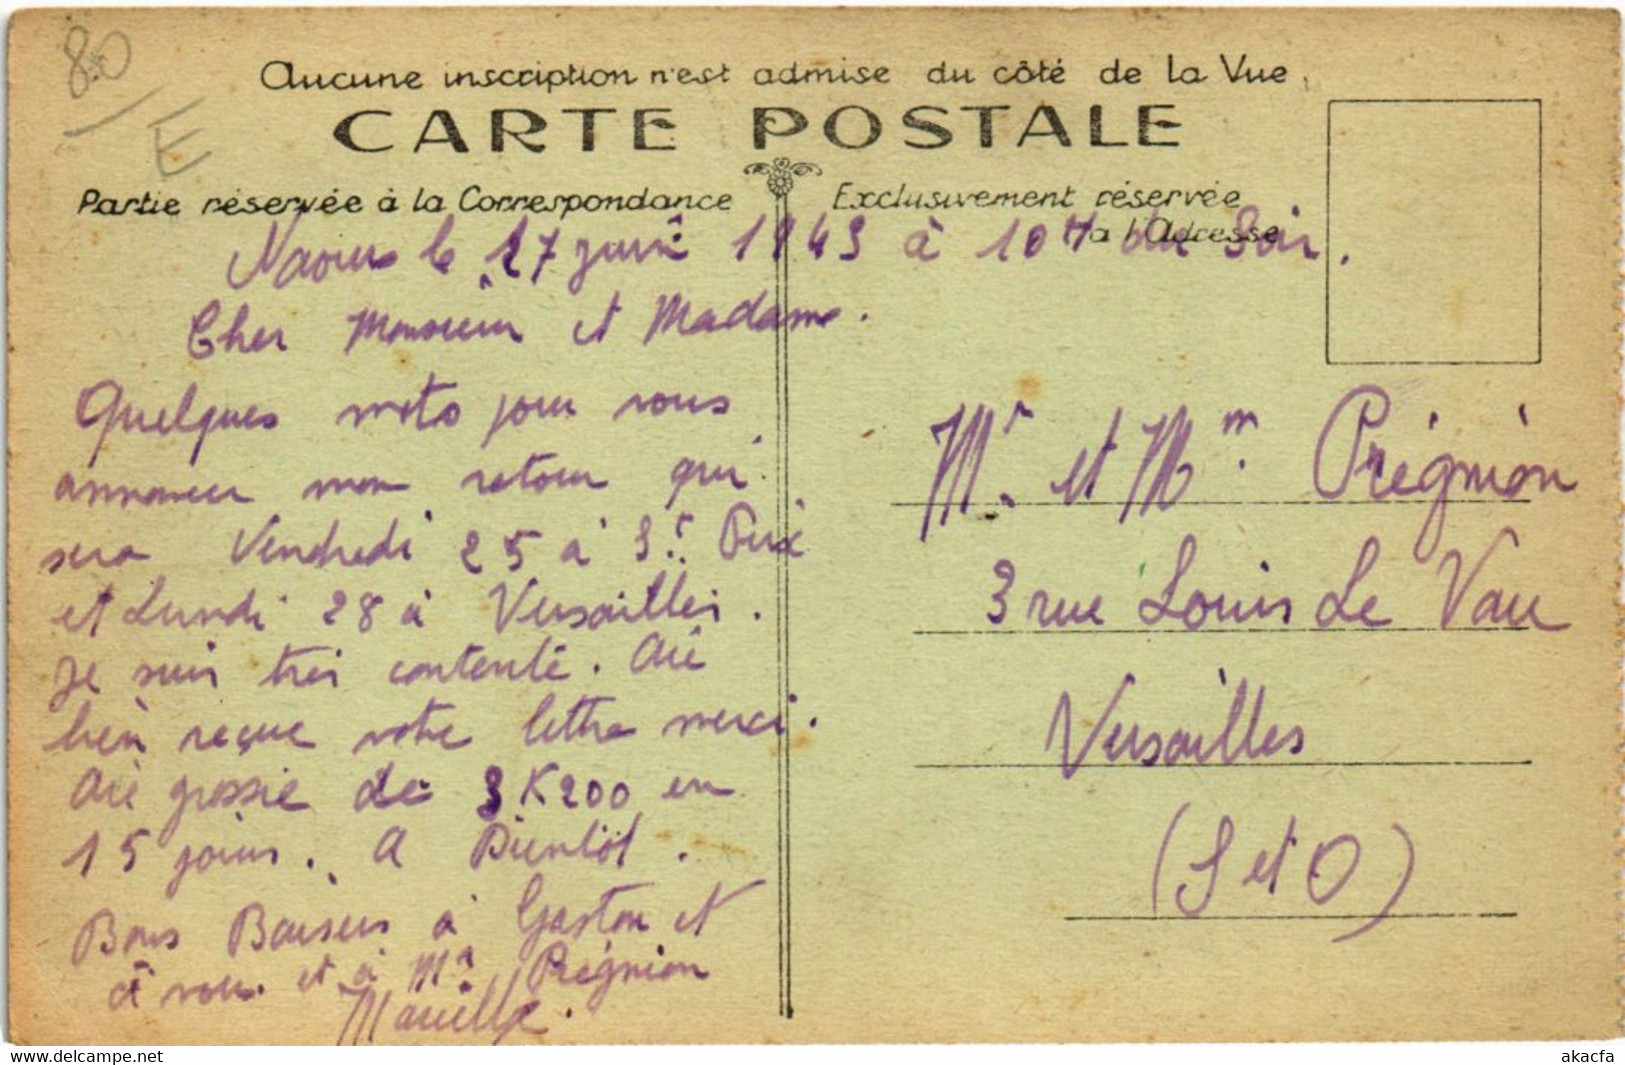 80
E
Aucune inscription n'est admise du côté de la Vue.
CARTE POSTALE
Partie réservée à la Correspondance
Exclusivement réservée
à l'Adresse
Naours le 17 juin 1943 à 10 H du Soir.
Cher Monsieur et Madame.
Quelques mots pour vous
annoncer mon retour qui
sera Vendredi 25 à St Prix
et Lundi 28 à Versailles.
Je suis très contente. Ai
bien reçue votre lettre merci.
Ai grossie de 3 K 200 en
15 jours. A Bientôt.
Bons Baisers à Gaston et
à vous et à Mr Prégnion
Marcelle.
Mr. et Mm. Prégnion
3 rue Louis Le Vau
Versailles
(S et O)
delcampe.net
akacfa